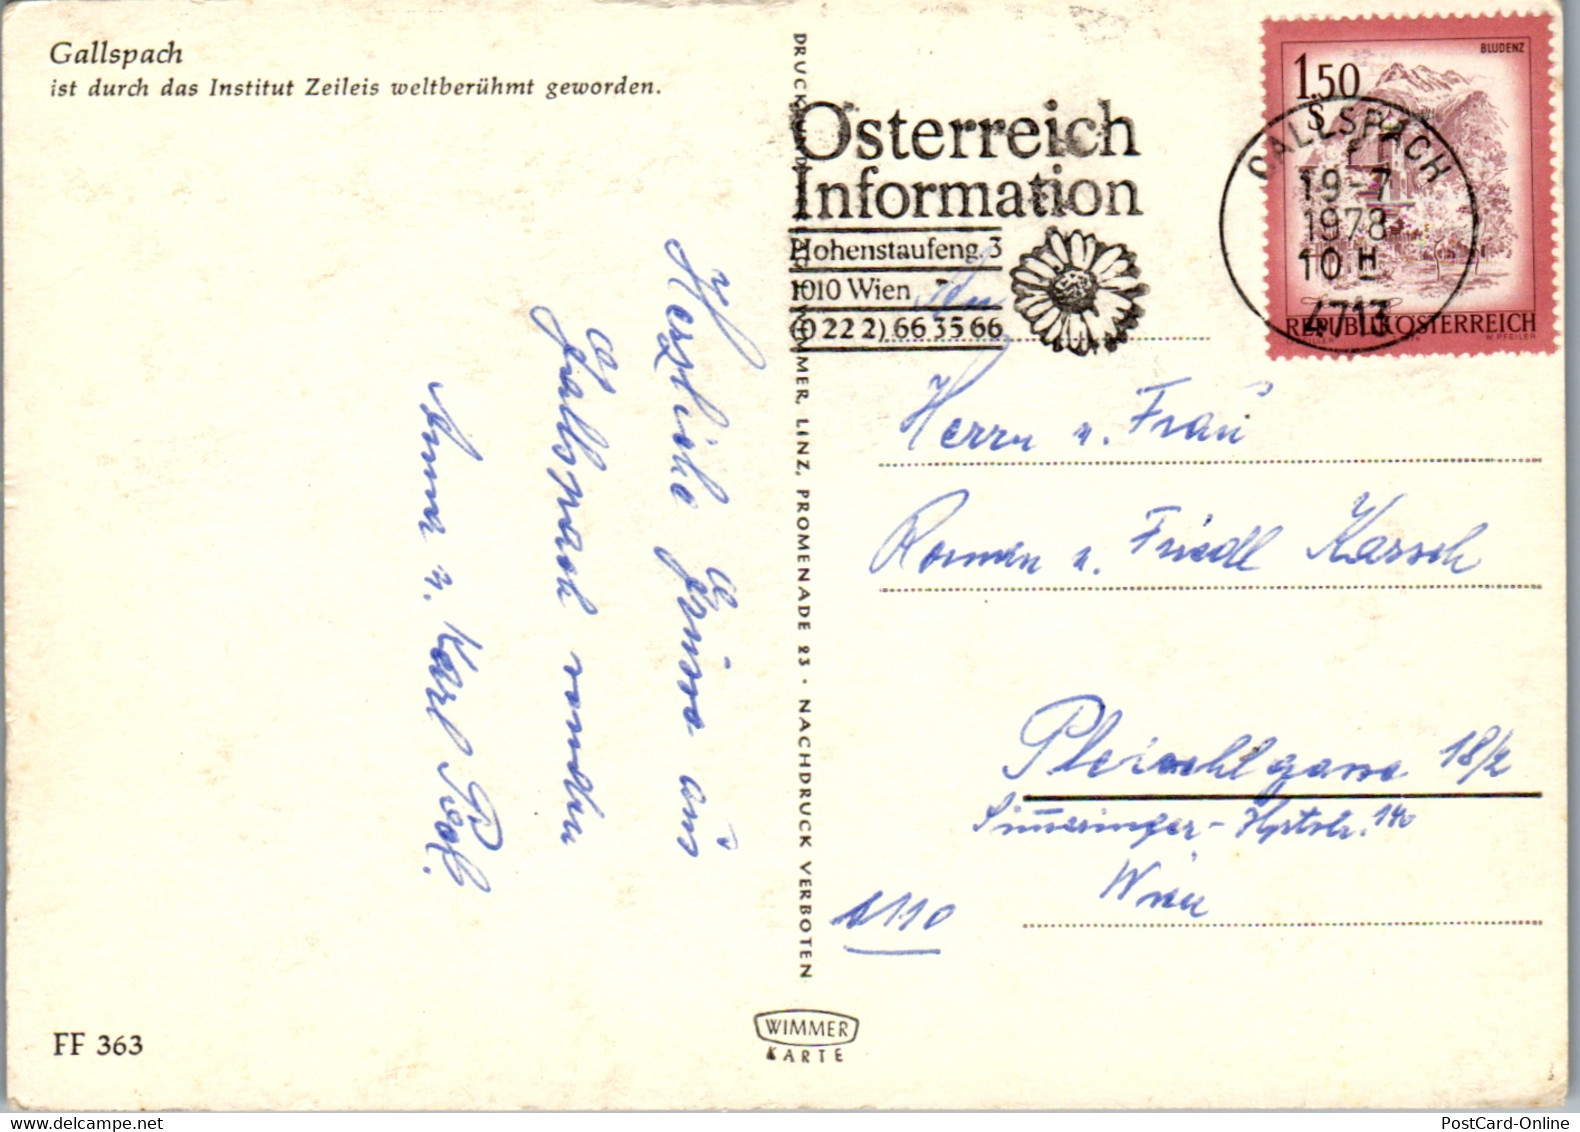 Gallspach
ist durch das Institut Zeileis weltberühmt geworden.
Herzliche Grüsse aus
Gallspach senden
Anna u. Karl
FF 363
DRUCK UND VERLAG WIMMER, LINZ, PROMENADE 23 · NACHDRUCK VERBOTEN
WIMMER
KARTE
Österreich
Information
Hohenstaufeng. 3
1010 Wien
(0 22 2) 66 35 66
BLUDENZ
1.50
S
REPUBLIK ÖSTERREICH
W. PFEILER
GALLSPACH
19-7
1978
10 H
4713
An
Herrn u. Frau
Roman u. Friedl Karsch
Pleischlgasse 18/2
Simmeringer-Hptstr.
Wien
1110
PostCard-Online